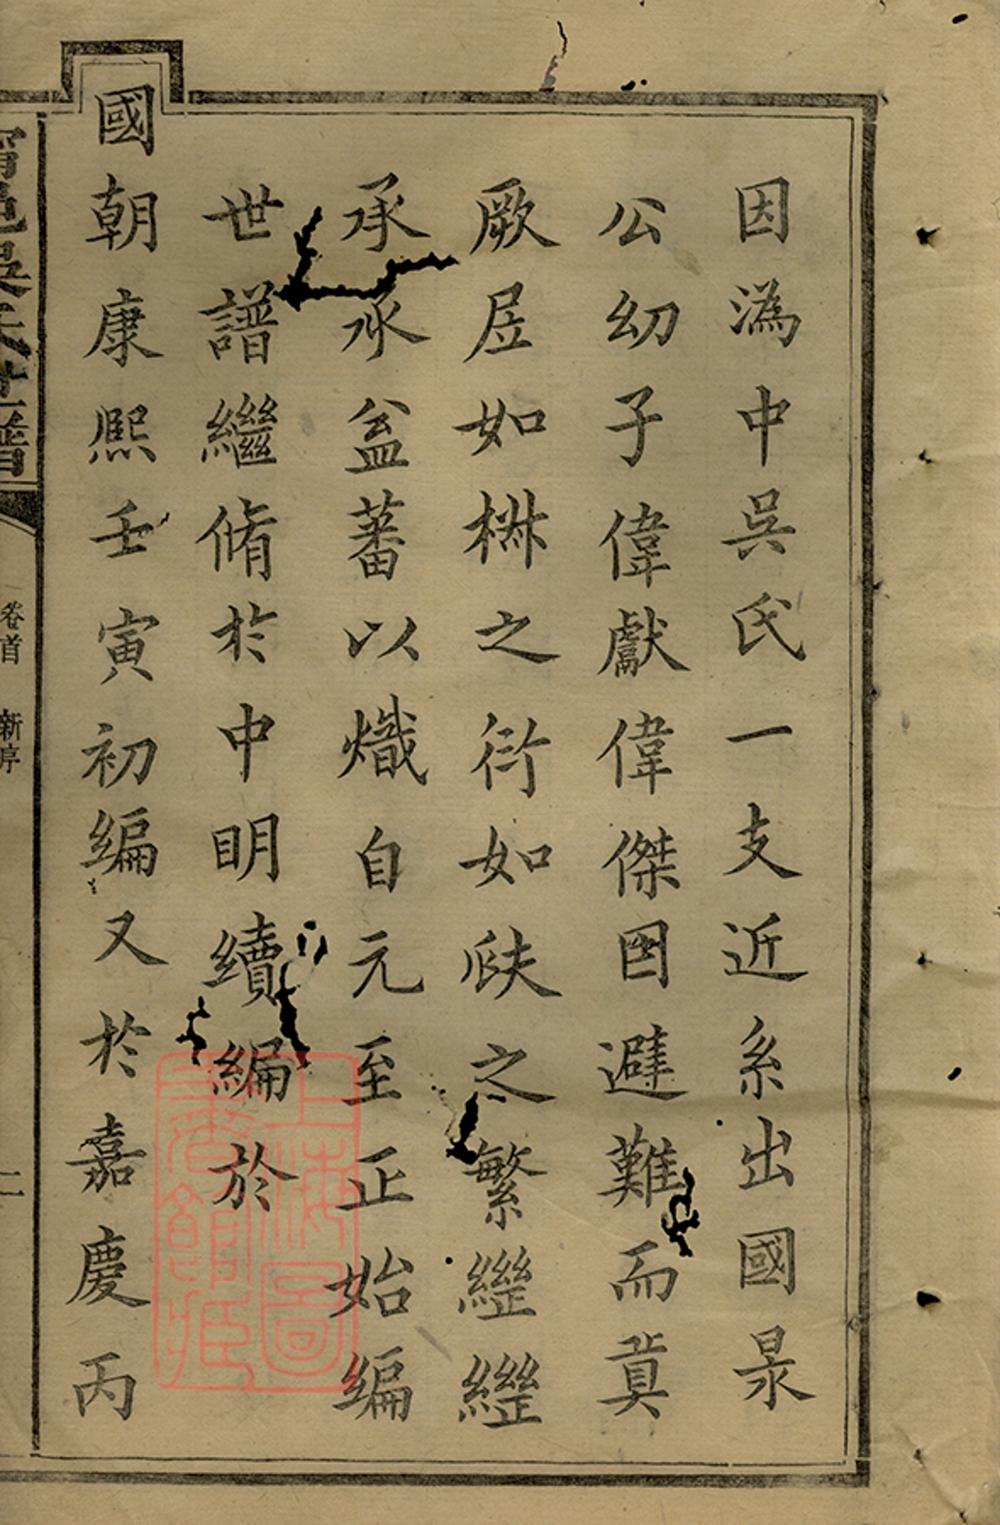 因溈中吳氏一支近系出國泉
公幼子偉獻偉傑因避難而奠
厥居如椒之衍如瓞之繁繩繩
承承益蕃以熾自元至正始編
世譜繼脩於中明續編於
國朝康熙壬寅初編又於嘉慶丙
甯邑吳氏世譜
卷首 新序
二
上海圖
書館藏